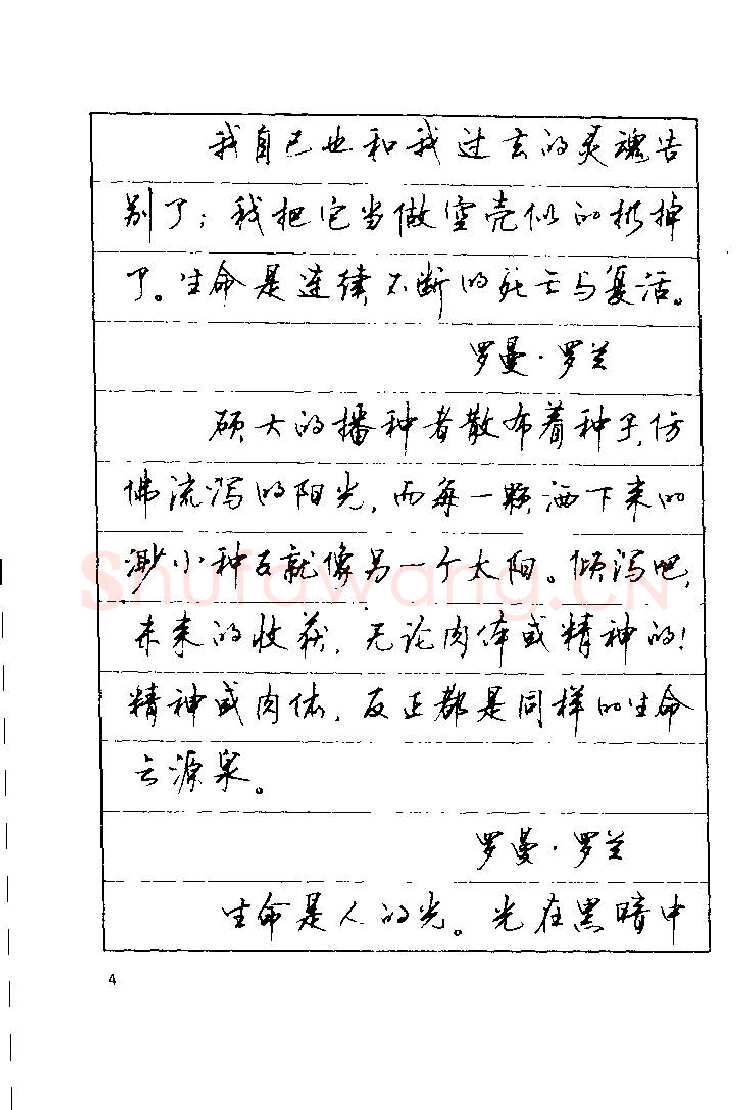 我自己也和我过去的灵魂告
别了；我把它当做空壳似的扔掉
了。生命是连续不断的死亡与复活。
罗曼·罗兰
硕大的播种者散布着种子，仿
佛流泻的阳光，而每一颗洒下来的
渺小种子就像另一个太阳。倾泻吧，
未来的收获，无论肉体或精神的！
精神或肉体，反正都是同样的生命
之源泉。
罗曼·罗兰
生命是人的光。光在黑暗中
4
Shufawang.CN